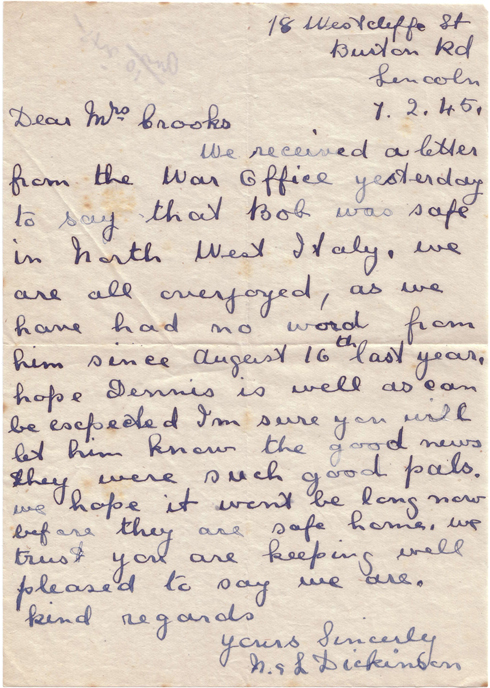 18 Westcliffe St
Burton Rd
Lincoln
7. 2. 45.
Dear Mrs Crooks
We received a letter
from the War Office yesterday
to say that Bob was safe
in North West Italy, we
are all overjoyed, as we
have had no word from
him since August 16th last year.
hope Dennis is well as can
be escpected I'm sure you will
let him know the good news
they were such good pals.
we hope it wont be long now
before they are safe home. we
trust you are keeping well
pleased to say we are.
kind regards
yours Sincerly
N. & L Dickinson